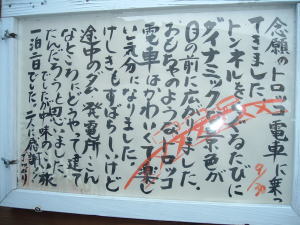 念願のトロッコ電車に乗っ
てきました。 9/30
トンネルをくぐるたびに
ダイナミックな景色が
目の前に広がりました。
おもちゃのようなトロッコ
電車はかわいくて楽し
い気分になりました。
けしきもすばらしいけど
途中のダム、発電所…こん
なところにどうやって建て
たんだろうと思いました。
でしたが中味のこい旅
一泊二日でした。